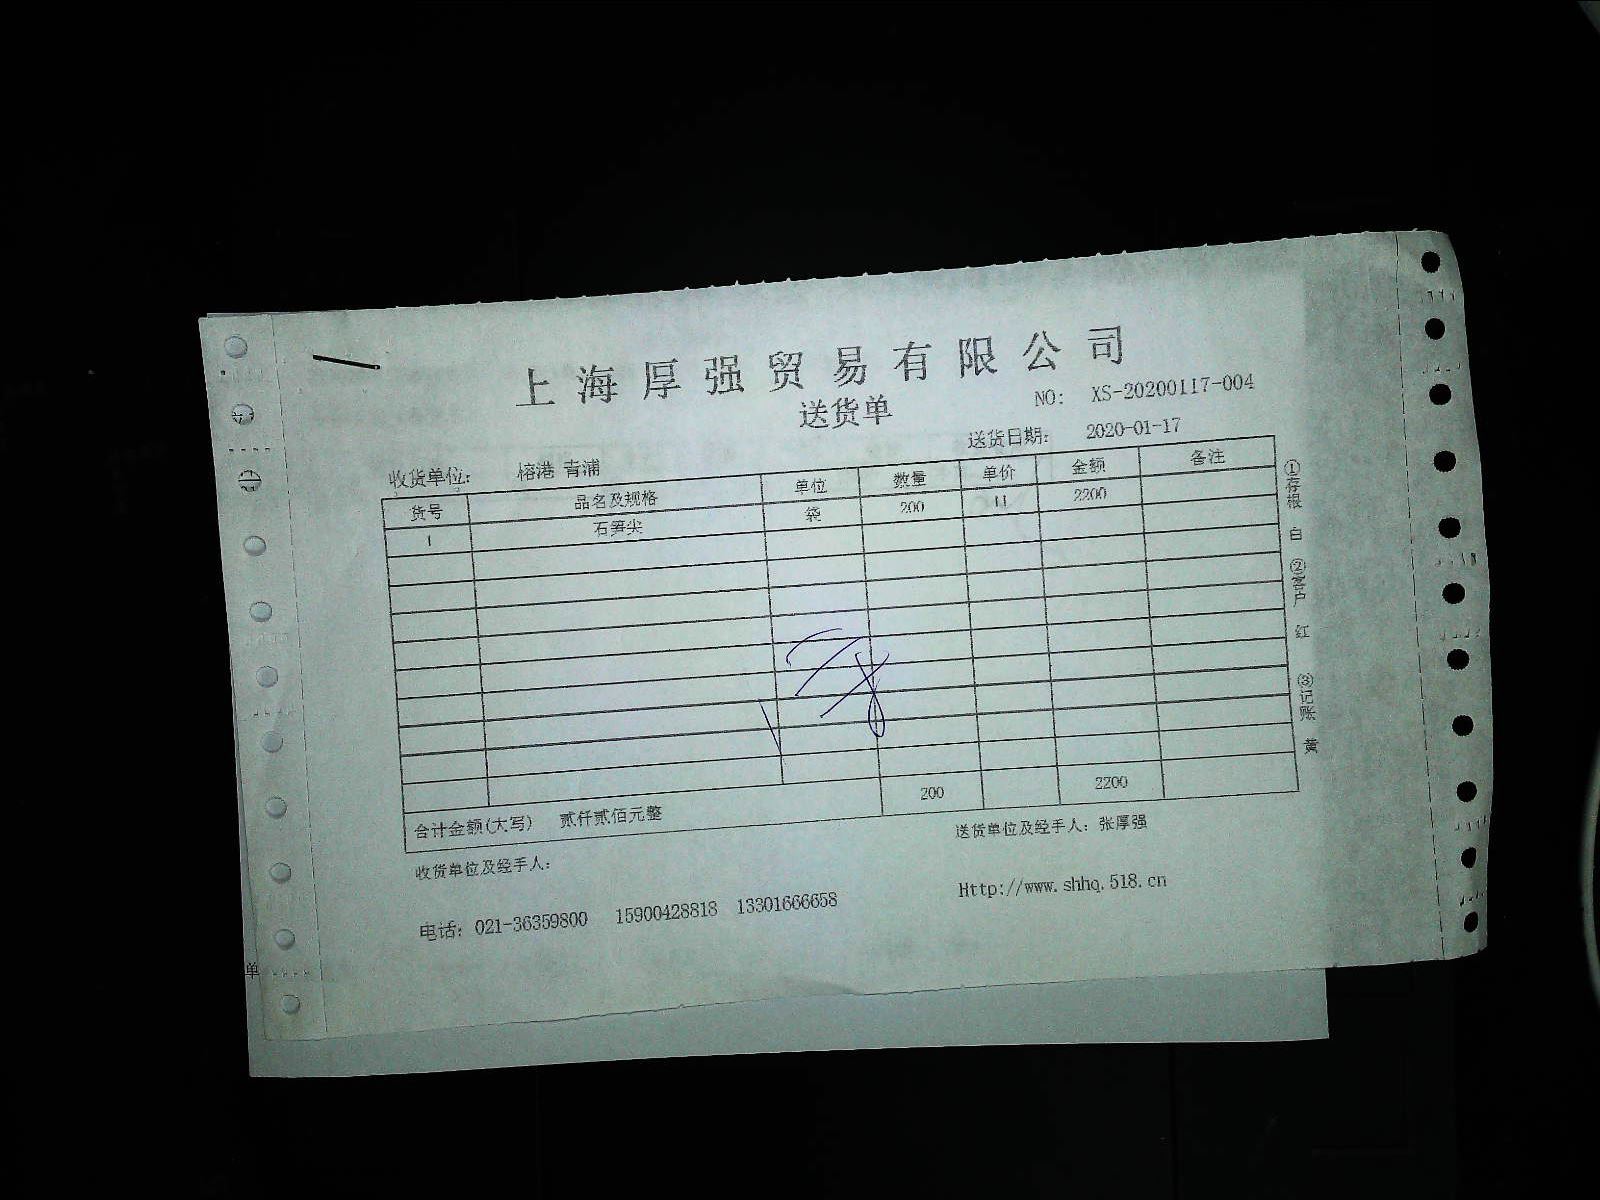 上海厚强贸易有限公司
送货单
NO: XS-20200117-004
送货日期: 2020-01-17
收货单位: 榕港 青浦
货号 品名及规格 单位 数量 单价 金额 备注
1 石笋尖 袋 200 11 2200
合计金额(大写) 贰仟贰佰元整 200 2200
收货单位及经手人:
送货单位及经手人: 张厚强
电话: 021-36359800 15900428818 13301666658
Http://www.shhq.518.cn
①存根 白 ②客户 红 ③记账 黄
单